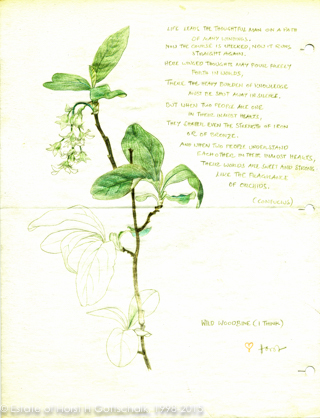 LIFE LEADS THE THOUGHTFUL MAN ON A PATH
OF MANY WINDINGS.
NOW THE COURSE IS CHECKED, NOW IT RUNS
STRAIGHT AGAIN.
HERE WINGED THOUGHTS MAY POUR FREELY
FORTH IN WORDS,
THERE THE HEAVY BURDEN OF KNOWLEDGE
MUST BE SHUT AWAY IN SILENCE.
BUT WHEN TWO PEOPLE ARE ONE
IN THEIR INMOST HEARTS,
THEY SHATTER EVEN THE STRENGTH OF IRON
OR OF BRONZE.
AND WHEN TWO PEOPLE UNDERSTAND
EACH OTHER IN THEIR INMOST HEARTS,
THEIR WORDS ARE SWEET AND STRONG
LIKE THE FRAGRANCE
OF ORCHIDS.
(CONFUCIUS)
WILD WOODBINE (I THINK)
© Estate of Horst in Gottschalk, 1998-2015